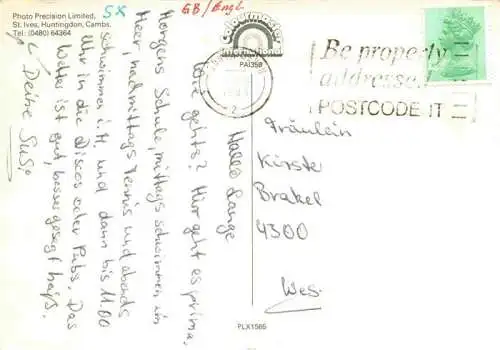 Photo Precision Limited,
St. Ives, Huntingdon, Cambs.
Tel: (0480) 64364
SX
GB/Engl.
Colourmaster
International
PAI359
Be properly
addressed
POSTCODE IT
Hallo Lange
Wie gehts? Hier geht es prima.
Morgens Schule, mittags schwimmen im
Meer, nachmittags Tennis und abends
schwimmen i. H. und dann bis 11.00
Uhr in die Discos oder Pubs. Das
Wetter ist gut, besser gesagt heiß.
Deine Susi
Fräulein
Kirste
Brakel
4300
Wes
PLX1565